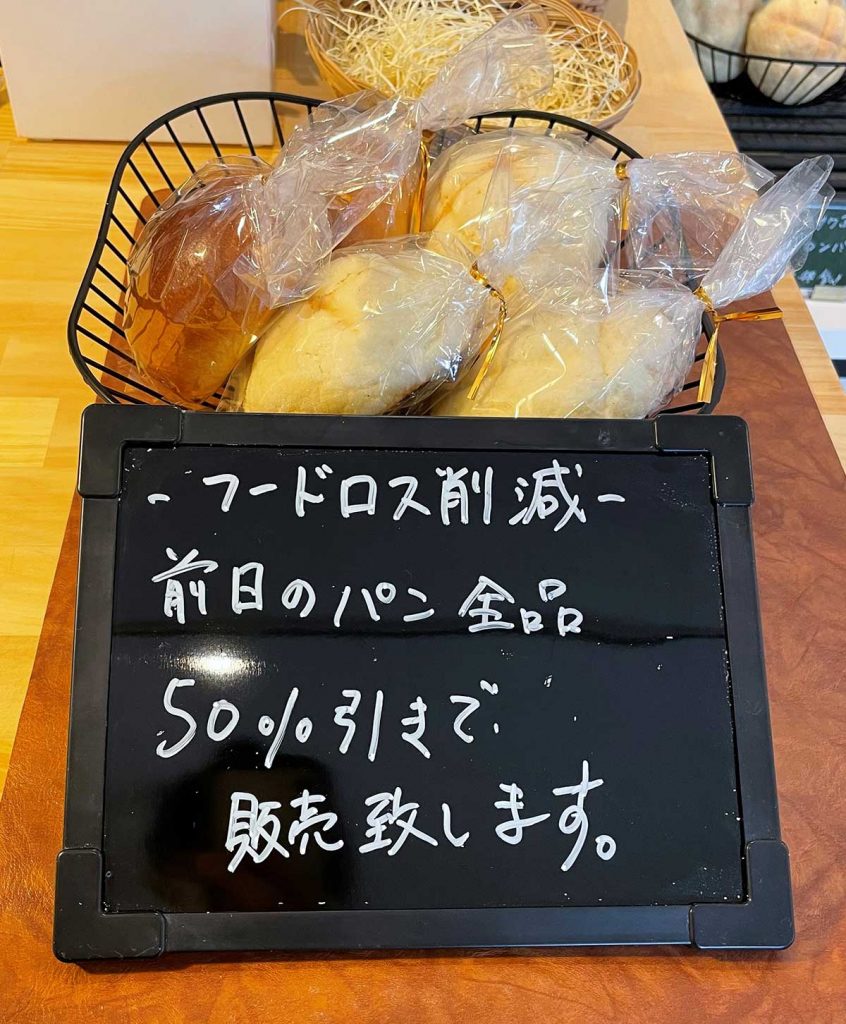 - フードロス削減 -
前日のパン全品
50%引きまで
販売致します。